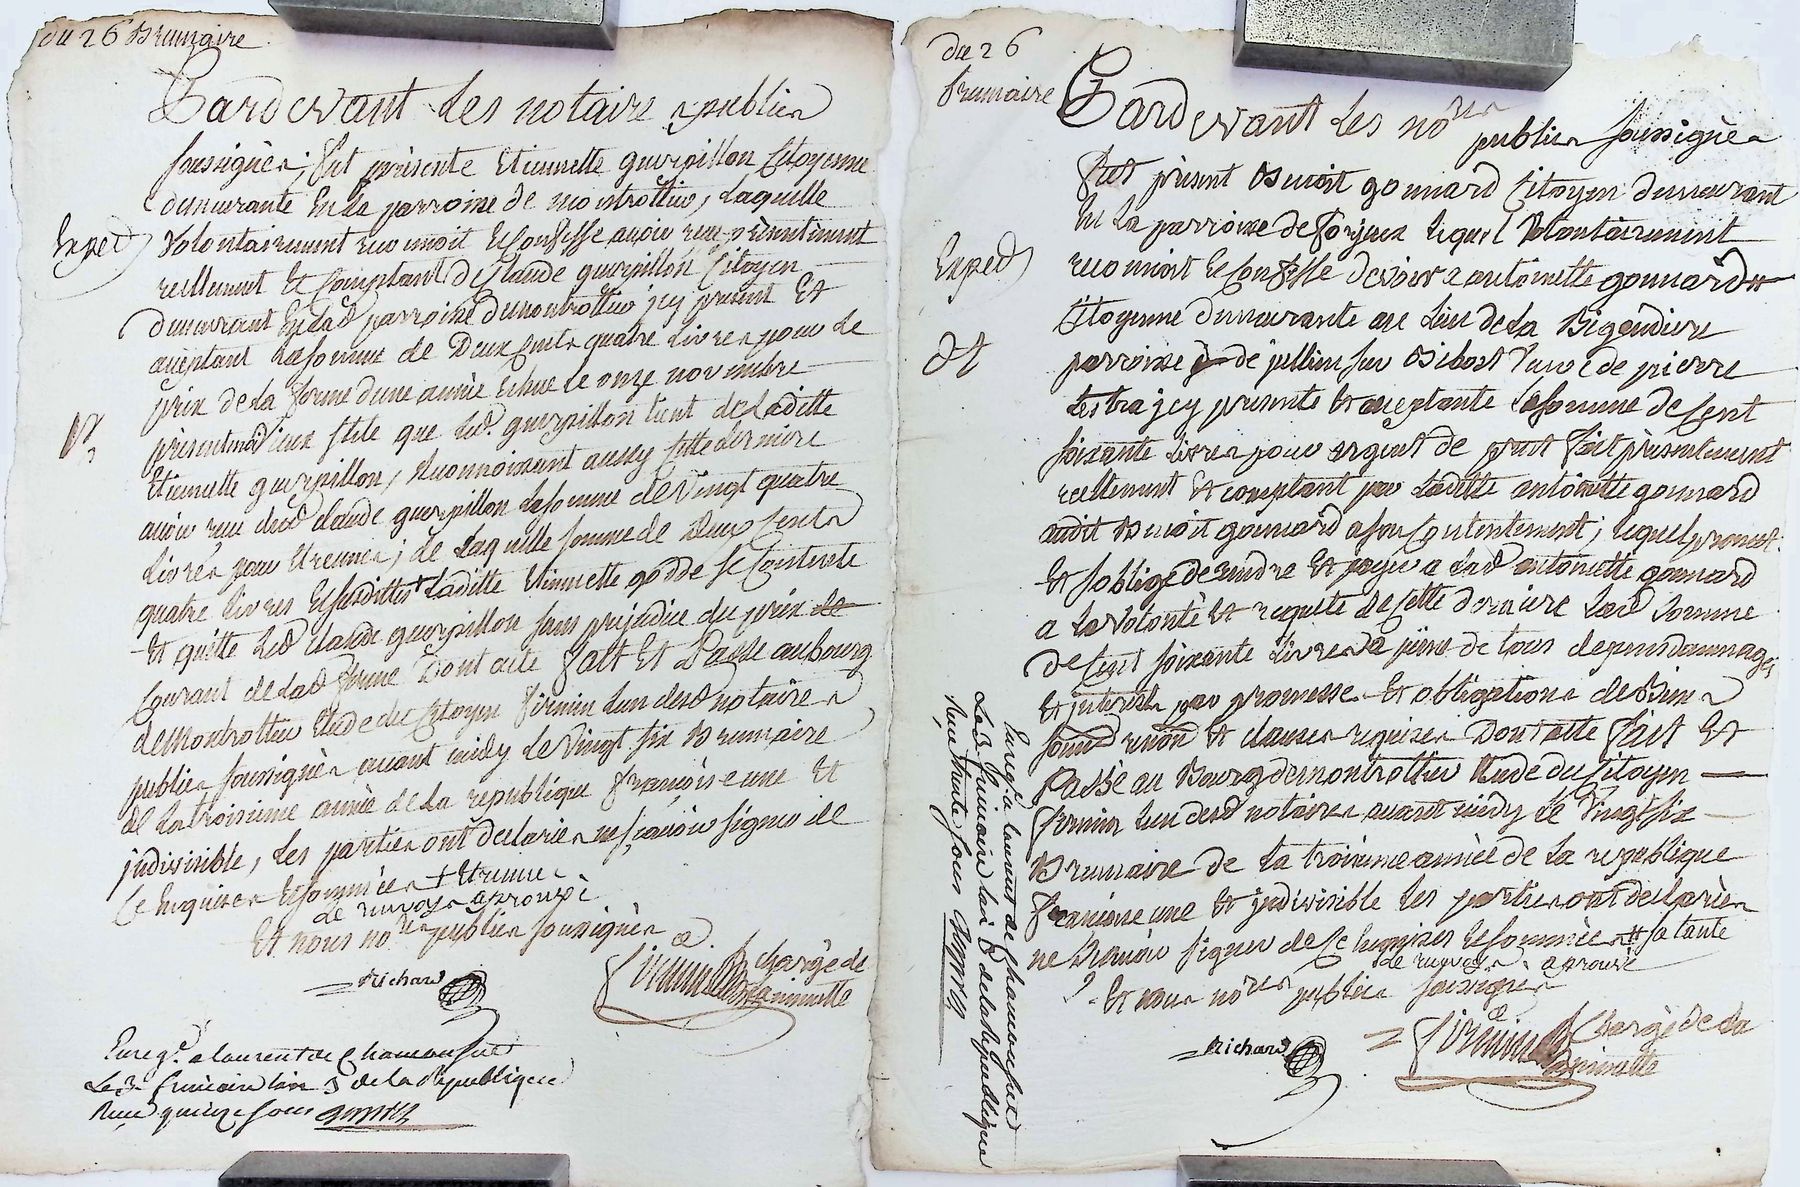 du 26 Brumaire
Pardevant les notaire publics
soussignés, fut présente Etiennette guerpillon Citoyenne
demeurante En la parroisse de montrottier, laquelle
Exped
volontairement reconnoit Et Confesse avoir reçu présentement
reellement Et Comptant de Claude guerpillon Citoyen
demeurant En lad parroisse demontrottier icy present Et
aceptant la somme de Deux Cents quatre livres pour le
prix de la ferme dune année Echue le onze novembre
présentmois vieux stile que led. guerpillon tient de ladite
Etiennette guerpillon, reconnoissant aussy Cette derniere
avoir reçu dud claude guerpillon la somme de vingt quatre
livres pour Etrennes; de laquelle somme de Deux Cents
quatre livres Et susdittes + laditte Etiennette god se Contente
Et quitte led Claude guerpillon sans préjudice du prix de
Courant de lad ferme Dont acte fait Et Passé au bourg
demontrottier Etude du Citoyen firmin lun desd notaires
publics soussignés avant midy le vingt six Brumaire
de la troisième année de la republique françoise une Et
indivisible, les parties ont declarés ne sçavoir signer de
Ce Enquises Et sommées + Etrennes
de renvoy approuvé
Et nous nores publics soussignés
Richard
firmin chargé de
la minutte
Enregé. a laurent de Chamousset
Le 3 frimaire lan 3 de la Republique
Reçu quinze sous
du 26
brumaire
Pardevant les nores
publics soussignés
fut présent Benoit gonnard Citoyen demeurant
En la parroisse de lequel Volontairement
Exped
reconnoit Et Confesse devoir a antoinette gonnard #
Citoyenne demeurante au lieu de la Bigoudiere
parroisse de jullien sur Bibost Veuve de pierre
Lestra icy presente Et aceptante la somme de Cent
soixante livres pour argent de pret fait présentement
reellement Et comptant par laditte antoinette gonnard
audit Benoit gonnard a son Contentement; lequel promet
Et soblige de rendre Et payer a lad antoinette gonnard
a la volonté Et requete de Cette dernière lad Somme
de Cent soixante livres a peine de tous depens dommages
Et interests par promesse Et obligations de Biens
soumd renond Et clauses requises Dont acte fait Et
Passé au Bourg demontrottier Etude du Citoyen
firmin lun desd notaires avant midy le Vingt six
Brumaire de la troisieme année de la republique
françoise une Et indivisible les parties ont declarés
ne Sçavoir signer de Ce Enquises Et sommées # sa tante
de renvoy aprouvé
Et nous nores publics soussignés
Richard
firmin Chargé de la
minutte
Enregé a laurent de chamousset
Le 3 frimaire lan 3 de la Republique
Reçu trente sous